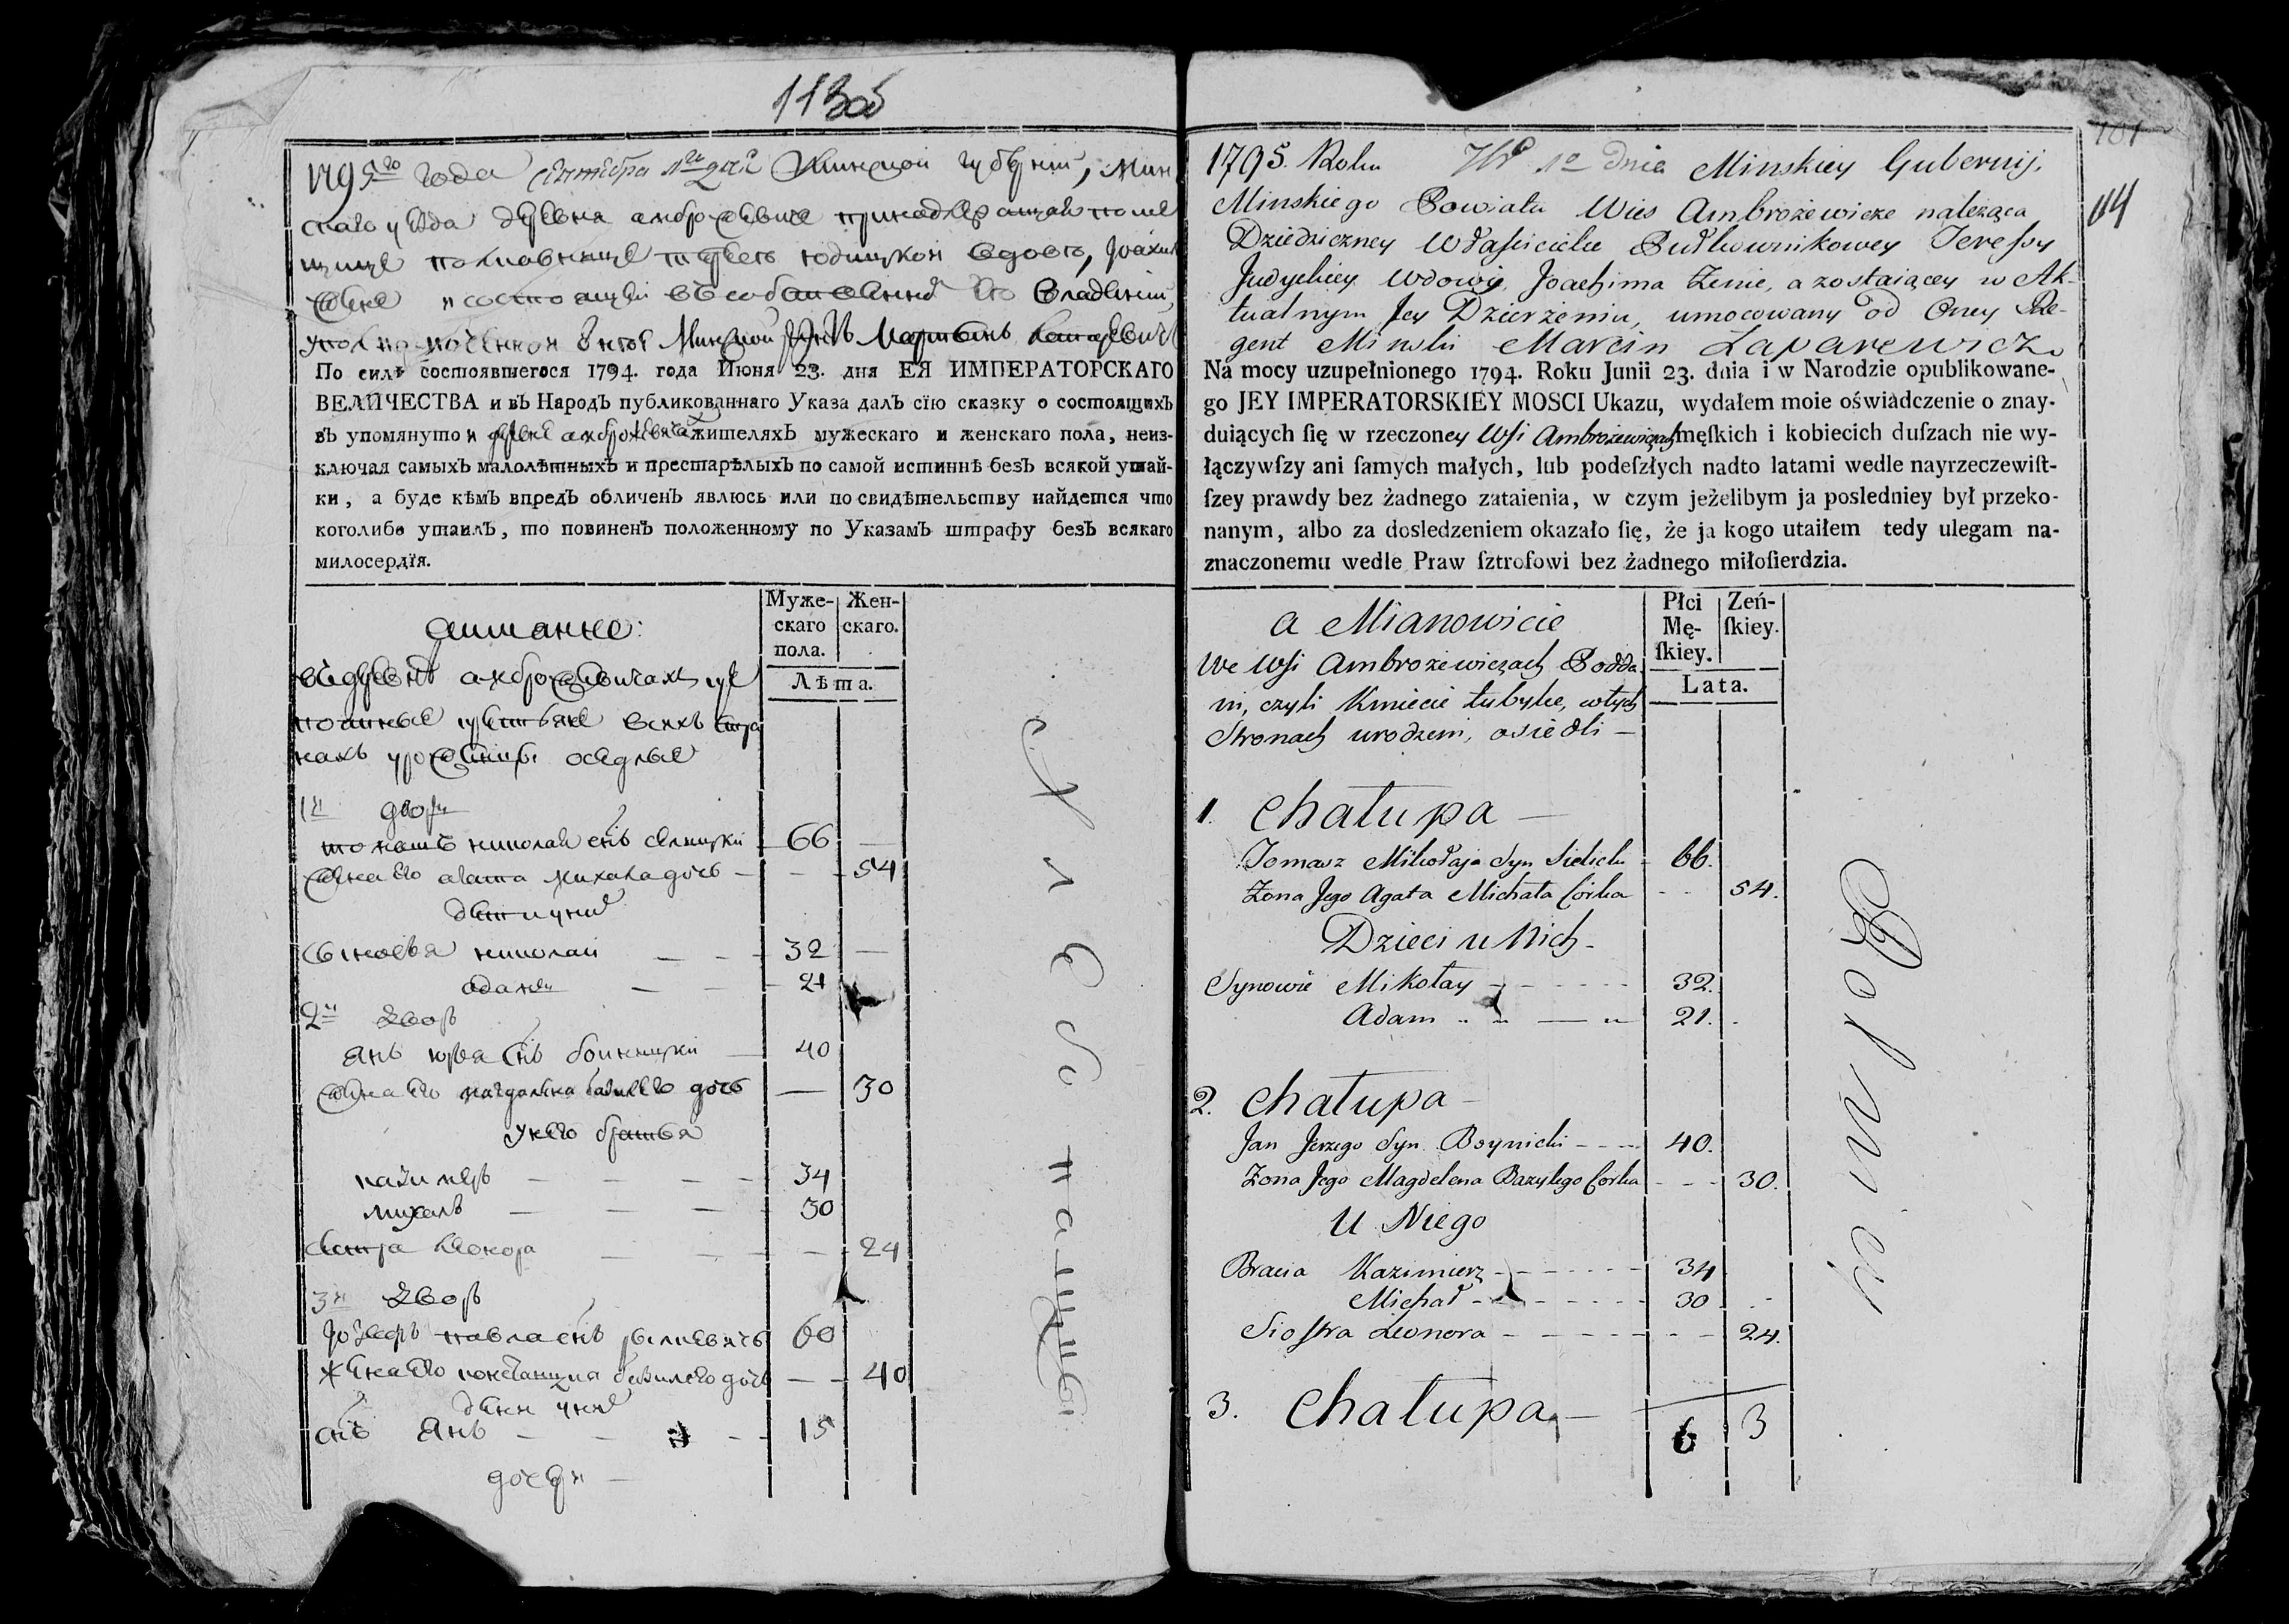 113об
1795го года сентября 1го дня Минской губернии, Мин
скаго уезда деревня амброжевиче принадлежащая поме
щице полковнице терезе юдицкой вдове, Іоахима
жене и состоящей въ собственномъ ею владении,
Минской Мартынъ
По силѣ состоявшегося 1794. года Июня 23. дня ЕЯ ИМПЕРАТОРСКАГО
ВЕЛИЧЕСТВА и въ Народъ публикованнаго Указа далъ сїю сказку о состоящихъ
въ упомянутой деревне амброжевичахъ жителяхъ мужескаго и женскаго пола, неиз-
ключая самыхъ малолѣтныхъ и престарѣлыхъ по самой истиннѣ безъ всякой утай-
ки, а буде кѣмъ впредъ обличенъ явлюсь или по свидѣтельству найдется что
коголибо утаилъ, то повиненъ положенному по Указамъ штрафу безъ всякаго
милосердїя.
Муже-
скаго
пола.
Жен-
скаго.
Лѣта.
а именно:
въ деревне амброжевичахъ
крестьяне всихъ стро
нахъ урожены оседлые
1й дворъ
томашъ николая снъ селицки 66 —
жена его агата михала дочь — — 54
дети унихъ
сыновья николай — — 32 —
адамъ — — 21
2й дворъ
Янъ юрья снъ бойницки — 40
жена его магдалена базылего дочь — 30
унего братья
казимеръ — — — — 34
михалъ — — — 30
сестра леонора — — — 24
3й дворъ
Іозефъ павла снъ 60
жена его констанция базылего дочь — — 40
дети унихъ
снъ Янъ — — — 15
дочери —
101
114
1795. Roku 1o dnia Minskiey Gubernij.
Minskiego Powiatu Wies Ambrożewicze należąca
Dziedziczney Właścicielce Pułkownikowey Teressy
Judyckiey Wdowie, Joachima Żenie, a zostaiącey w Ak-
tualnym Jey Dzierżeniu, umocowany od Oney Re-
gent Minski Marcin Łaparewicz.
Na mocy uzupełnionego 1794. Roku Junii 23. dnia i w Narodzie opublikowane-
go JEY IMPERATORSKIEY MOSCI Ukazu, wydałem moie oświàdczenie o znay-
duiących ſię w rzeczoney Wsi Ambrożewiczach męſkich i kobiecich duſzach nie wy-
łączywſzy ani ſamych małych, lub podeſzłych nadto latami wedle nayrzeczewiſt-
ſzey prawdy bez żadnego zataienia, w czym jeżelibym ja posledniey był przeko-
nanym, albo za dosledzeniem okazało ſię, że ja kogo utaiłem tedy ulegam na-
znaczonemu wedle Praw ſztrofowi bez żadnego miłoſierdzia.
Płci
Mę-
ſkiey.
Zeń-
ſkiey.
Lata.
a Mianowicie
We Wsi Ambrożewiczach Podda
ni, czyli Kmiecie tubylce, w tych
Stronach urodzeni, osiedli —
1. Chałupa —
Tomasz Mikołaja Syn Sielicki - 66.
Żona Jego Agata Michała Córka - - 54.
Dzieci u Nich -
Synowie Mikołay - - - - - - 32.
Adam - - — - 21.
2. Chałupa —
Jan Jerzego Syn Boynicki - - - 40.
Żona Jego Magdelena Bazylego Córka - - - 30.
U Niego
Bracia Kazimierz - - - - - - 34
Michał - - - - - - 30
Siostra Leonora - - - - - - - 24.
3. Chałupa —
6 3